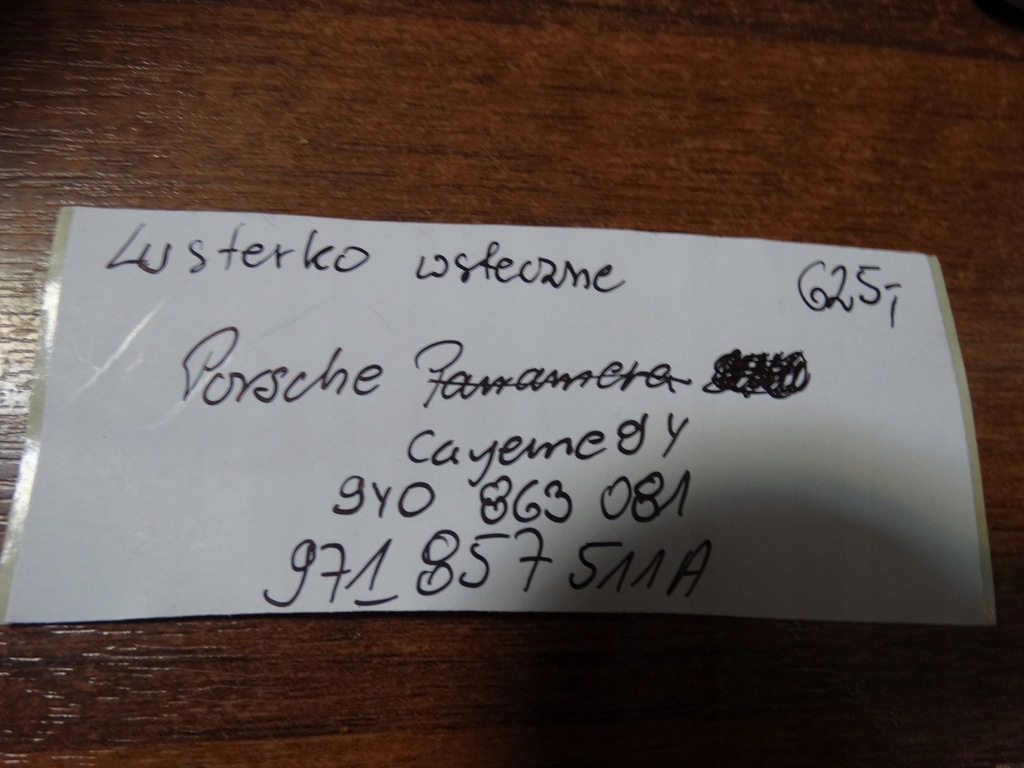 Lusterko wsteczne 625,-
Porsche Panamera
Cayenne 9Y
9Y0 863 081
971 857 511A